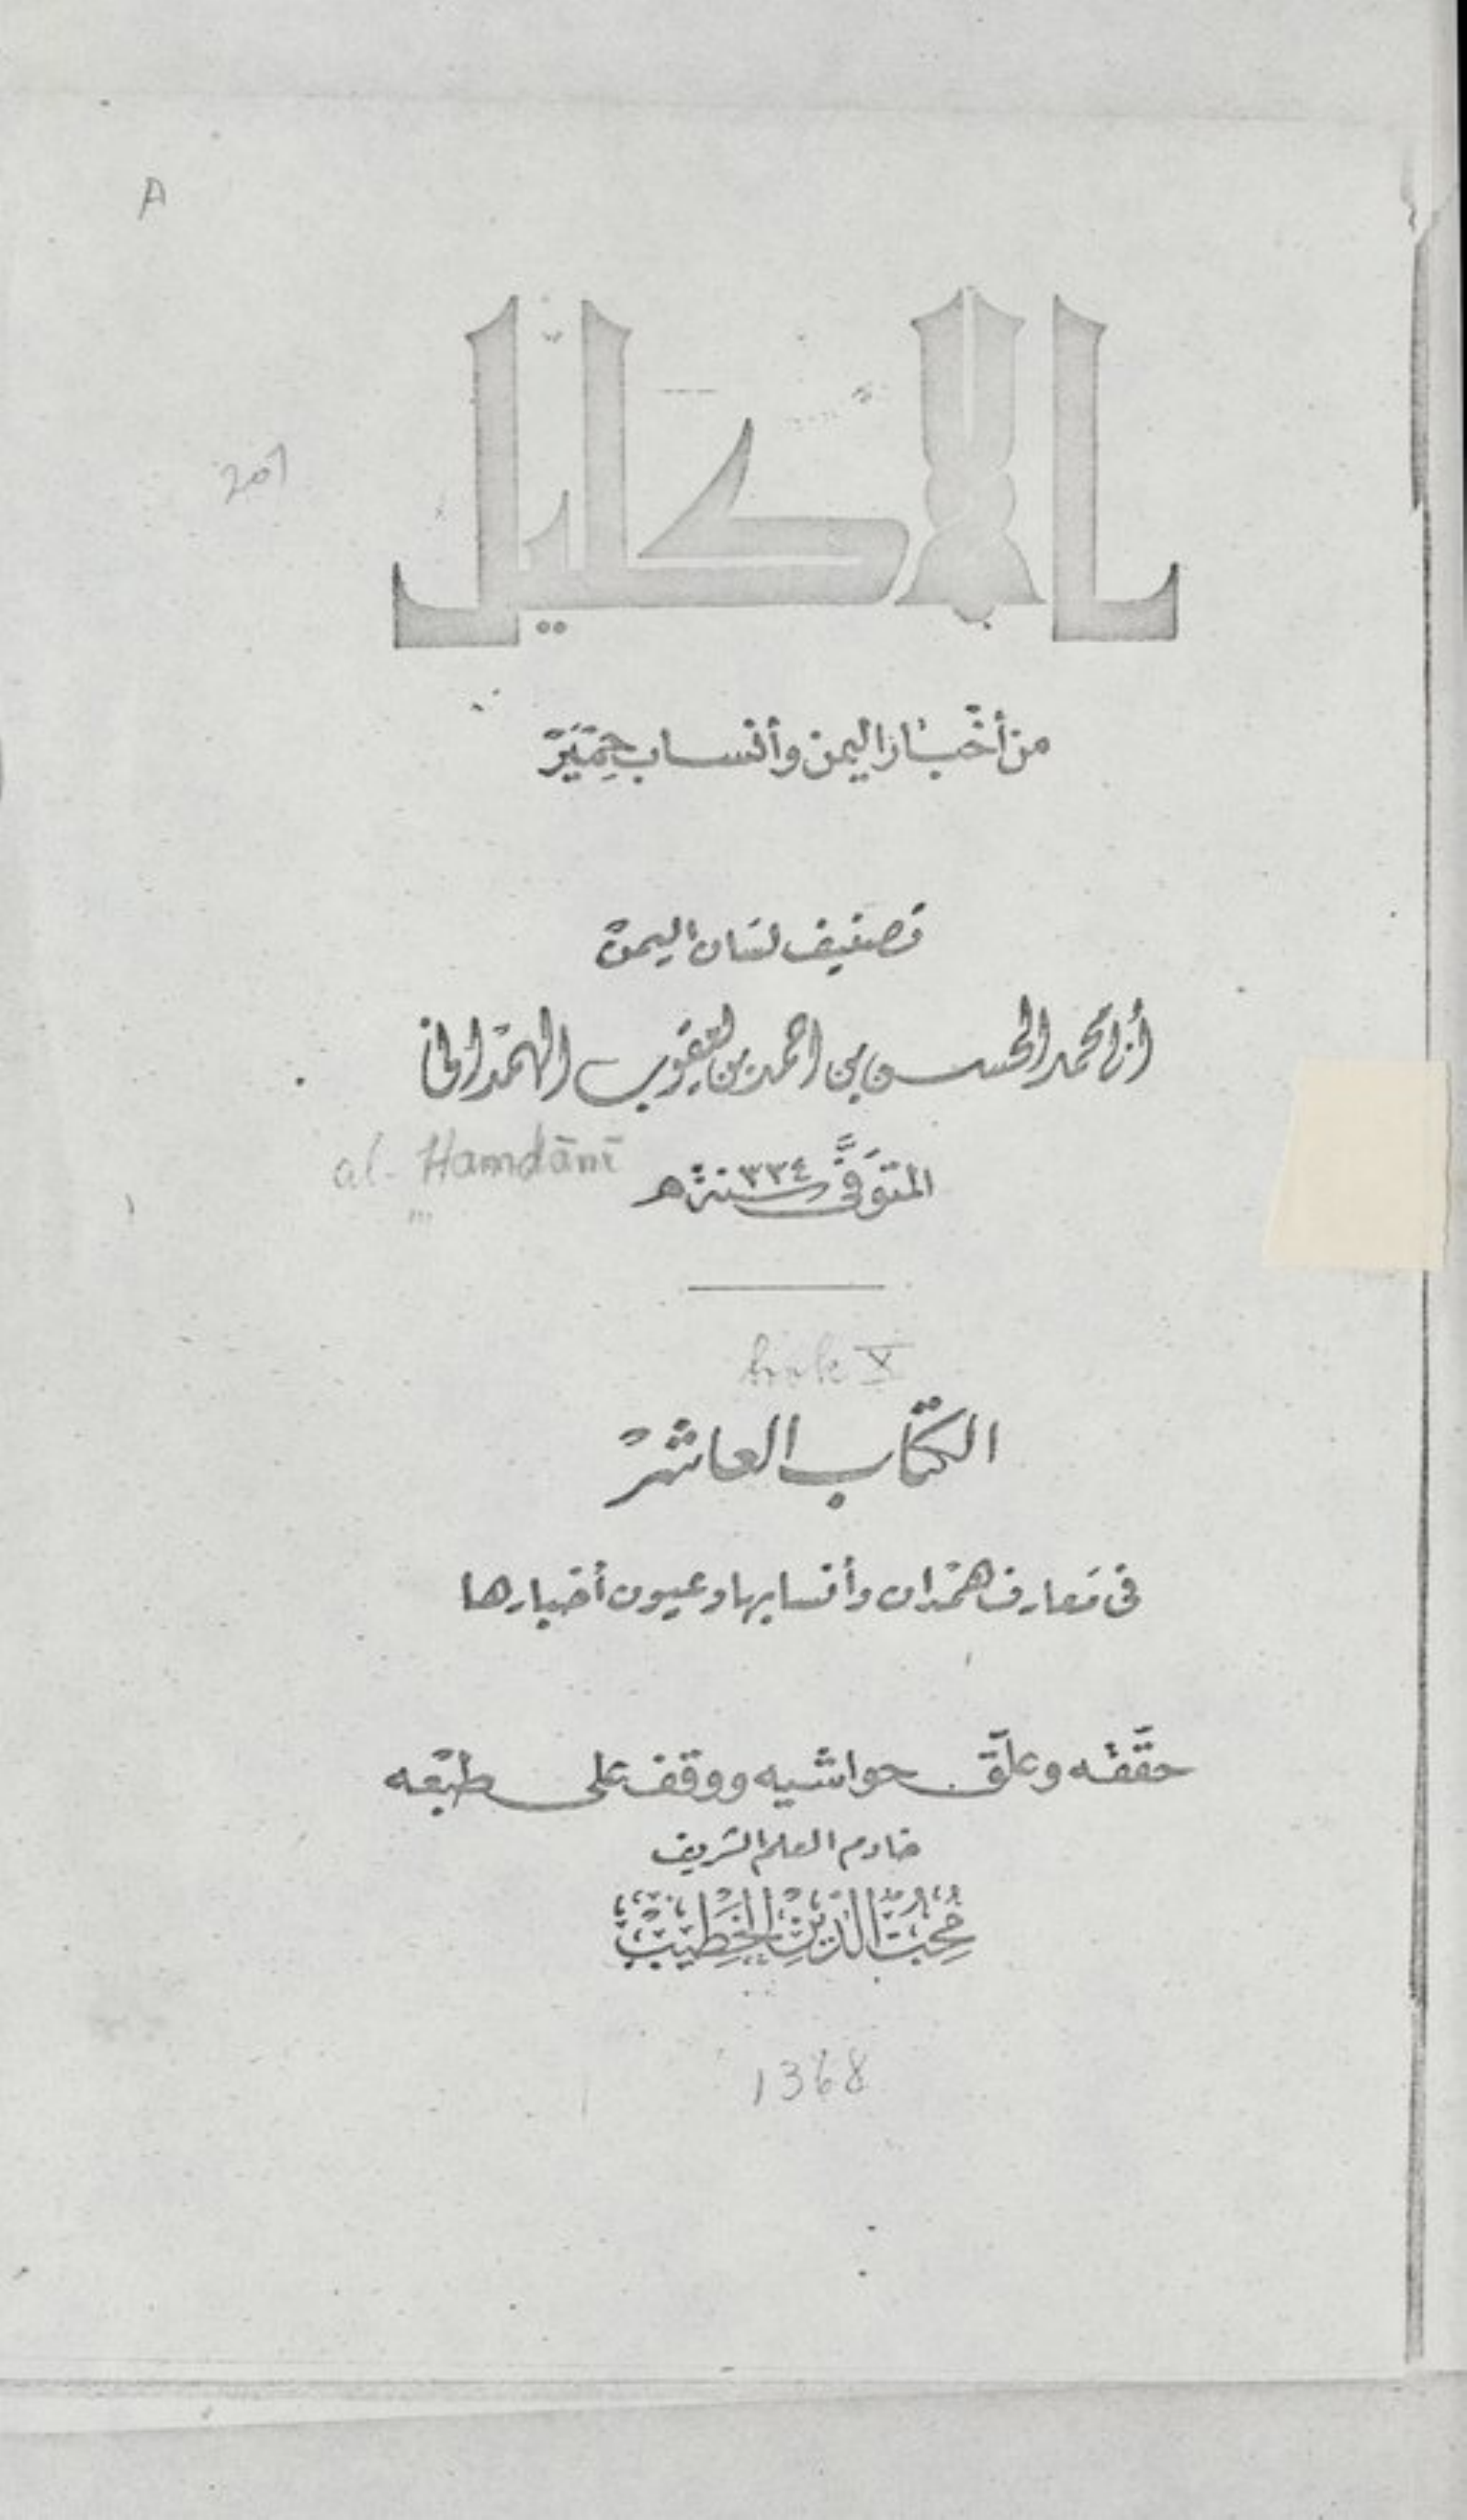 A
الإكليل
207
من أخبار اليمن وأنساب حمير
تصنيف لسان اليمن
أبى محمد الحسن بن احمد بن يعقوب الهمدانى
المتوفى سنة ٣٣٤ هـ
al-Hamdānī
book X
الكتاب العاشر
فى معارف همدان وأنسابها وعيون أخبارها
حققه وعلق حواشيه ووقف على طبعه
خادم العلم الشريف
محب الدين الخطيب
1368